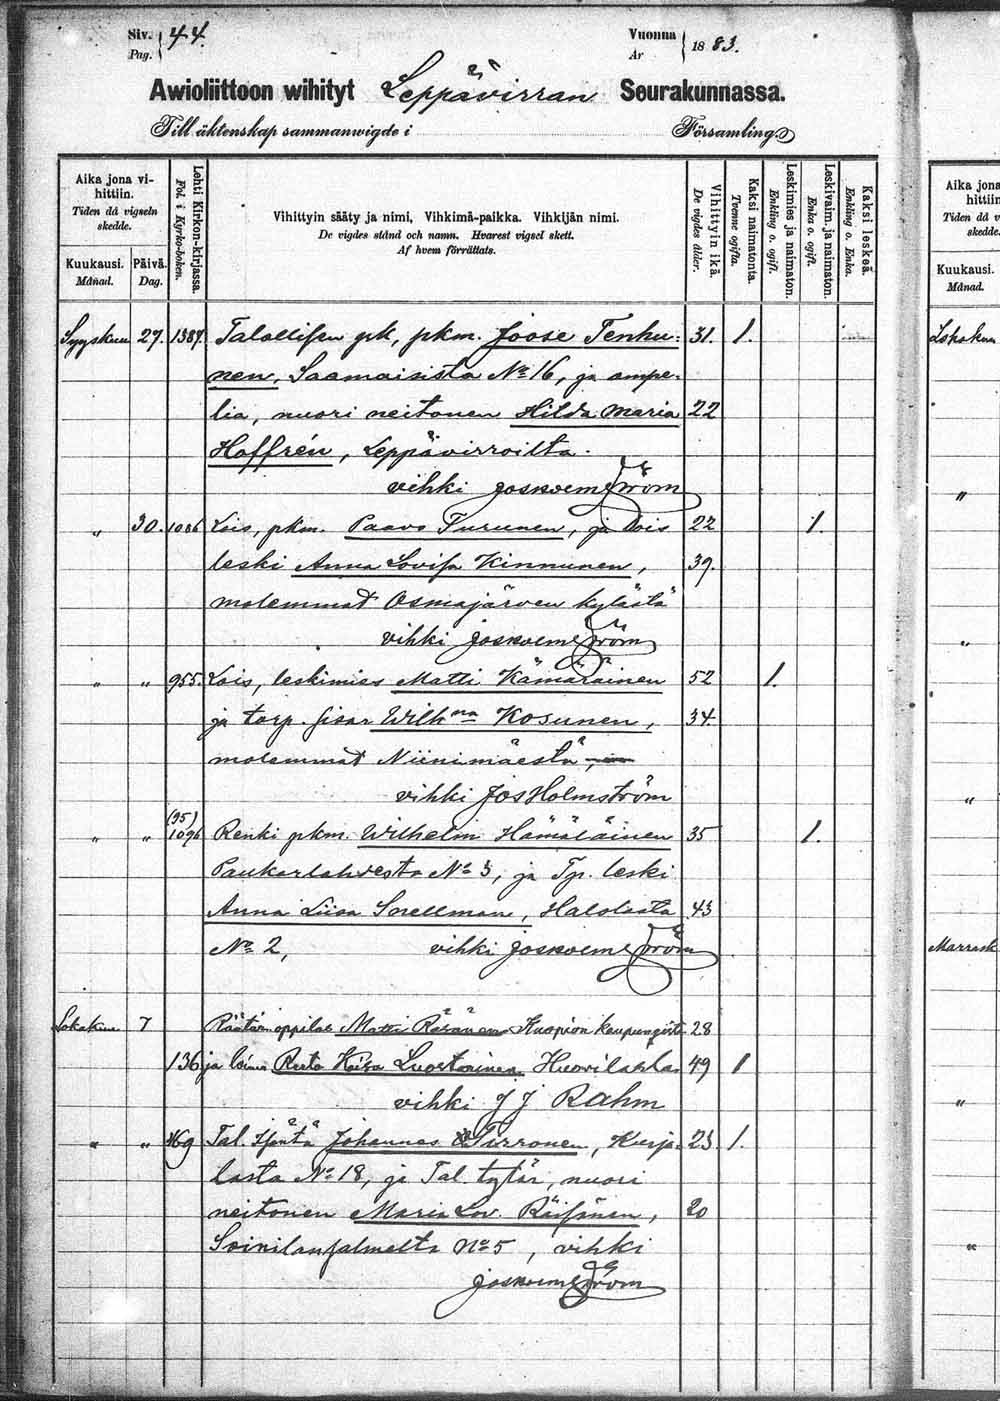 Siv. 44. Vuonna 1883.
Pag. År
Awioliittoon wihityt Leppävirran Seurakunnassa.
Till äktenskap sammanwigde i Församling
Aika jona vihittiin.
Tiden då vigseln skedde.
Kuukausi.
Månad.
Päivä.
Dag.
Lehti Kirkon-kirjassa.
Fol. i Kyrko-boken.
Vihittyin sääty ja nimi, Vihkimä-paikka. Vihkijän nimi.
De vigdes stånd och namn. Hvarest vigsel skett.
Af hvem förrättats.
Vihittyin ikä.
De vigdes ålder.
Kaksi naimatonta.
Tvenne ogifta.
Leskimies ja naimaton.
Enkling o. ogift.
Leskivaim. ja naimaton.
Enka o. ogift.
Kaksi leskeä.
Enkling o. Enka.
Syyskuu 27. 1387. Talollisen pk, pkm. Joose Tenhu- 31. 1.
nen, Saamaisista No 16, ja ompe-
lia, nuori neitonen Hilda Maria 22
Hoffrén, Leppävirroilta.
vihki Jos Holmström
" 30. 1086 Lois, pkm. Paavo Turunen, ja lois 22 1.
leski Anna Lovisa Kinnunen, 39.
molemmat Osmajärven kylästä
vihki Jos Holmström
" " 955. Lois, leskimies Matti Kämäräinen 52 1.
ja torp. sisar Wilhna Kosunen, 34.
molemmat Niinimäestä,
vihki Jos Holmström
(95)
" " 1096 Renki pkm. Wilhelm Hämäläinen 35 1.
Paukarlahdesta No 3, ja Tp. leski
Anna Liisa Snellman, Halolasta 43
No 2, vihki Jos Holmström
Lokakuu 7 Räätärinoppilas Matti Räsänen Kuopion kaupungista 28
136 ja loinen Reeta Kaisa Luostarinen Huovilasta 49 1
vihki J J Rahm
" " 169 Tal. isäntä Johannes Tirronen, Kurja- 23. 1.
lasta No 18, ja Tal. tytär, nuori
neitonen Maria Lov. Räisänen, 20
Soinilansalmelta No 5, vihki
Jos Holmström
Aika jona
hittiin
Tiden då v
skedde.
Kuukausi.
Månad.
Lokakuu
"
"
"
Marrask
"
"